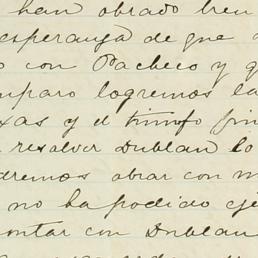 han obrado bien
esperanza de que
o con Pacheco y q
mparo logremos la
xas y el triunfo fin
resolver Dublan lo
dremos obrar con m
no ha podido eje
ontar con Dublan